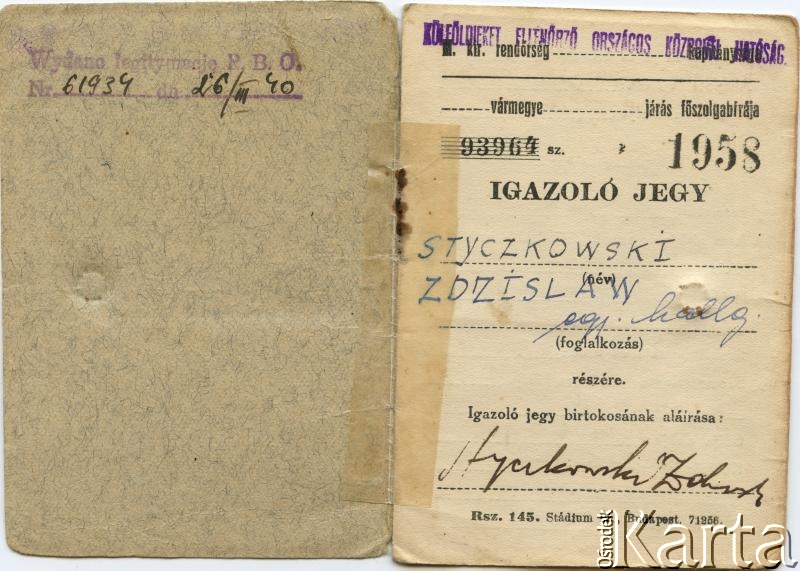 Wydano legitymację P. B. O.
Nr. 61934 dn 26/III 40
KÜLFÖLDIEKET ELLENŐRZŐ ORSZÁGOS KÖZPONTI HATÓSÁG.
M. kir. rendőrség kapitánysága
vármegye járás főszolgabírája
93964 sz. 1958
IGAZOLÓ JEGY
STYCZKOWSKI
(név)
ZDZÍSLAW
egy. hallg.
(foglalkozás)
részére.
Igazoló jegy birtokosának aláírása:
Styczkowski
Rsz. 145. Stádium Budapest. 71256.
Ośrodek Karta